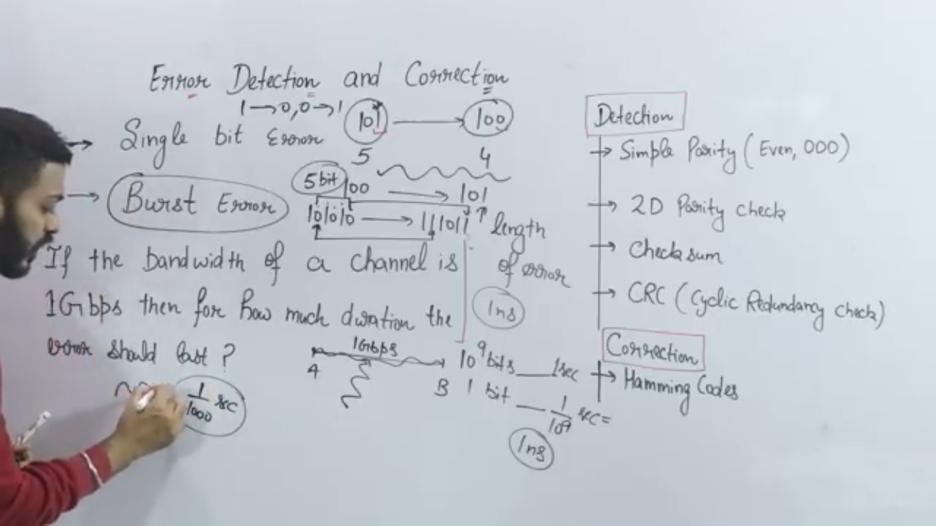 Error Detection and Correction
1→0, 0→1
Single bit Error 101 → 100
5 4
5 bit 100 → 101
Burst Error
101010 → 111011 length of error
If the bandwidth of a channel is
1Gbps then for how much duration the
error should last?
1ns
1Gbps
A B
10^9 bits __ 1sec
1 bit __ 1/10^9 sec =
1ns
1/1000 sec
Detection
→ Simple Parity (Even, ODD)
→ 2D Parity check
→ Checksum
→ CRC (Cyclic Redundancy check)
Correction
→ Hamming Codes